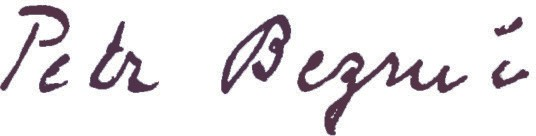 Petr Bezruč